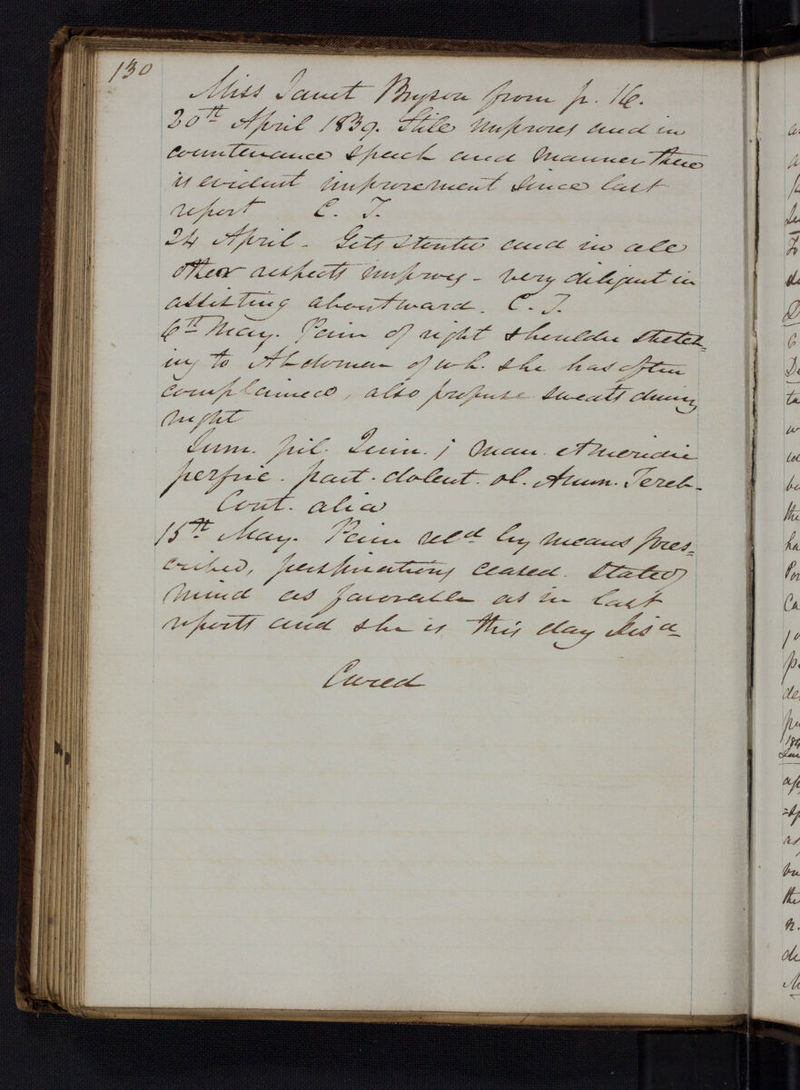 130
Miss Janet Bryson from p. 16.
20th April 1839. Still improves and in
countenance speech and manner there
is evident improvement since last
report C. T.
24 April. Gets stouter and in all
other respects improves - very diligent in
assisting about ward. C. T.
6th May. Pain of right shoulder stretch=
ing to Abdomen of wh. she has often
complained, also profuse sweats during
night
Sum. pil. Quin. j mane et meridie
perfric. part. dolent. ol. Amm. Tereb.
Cont. alia
15th May. Pain reld by means pres=
cribed, perspirations ceased. State of
mind as favorable as in last
reports and she is this day Disd
Cured